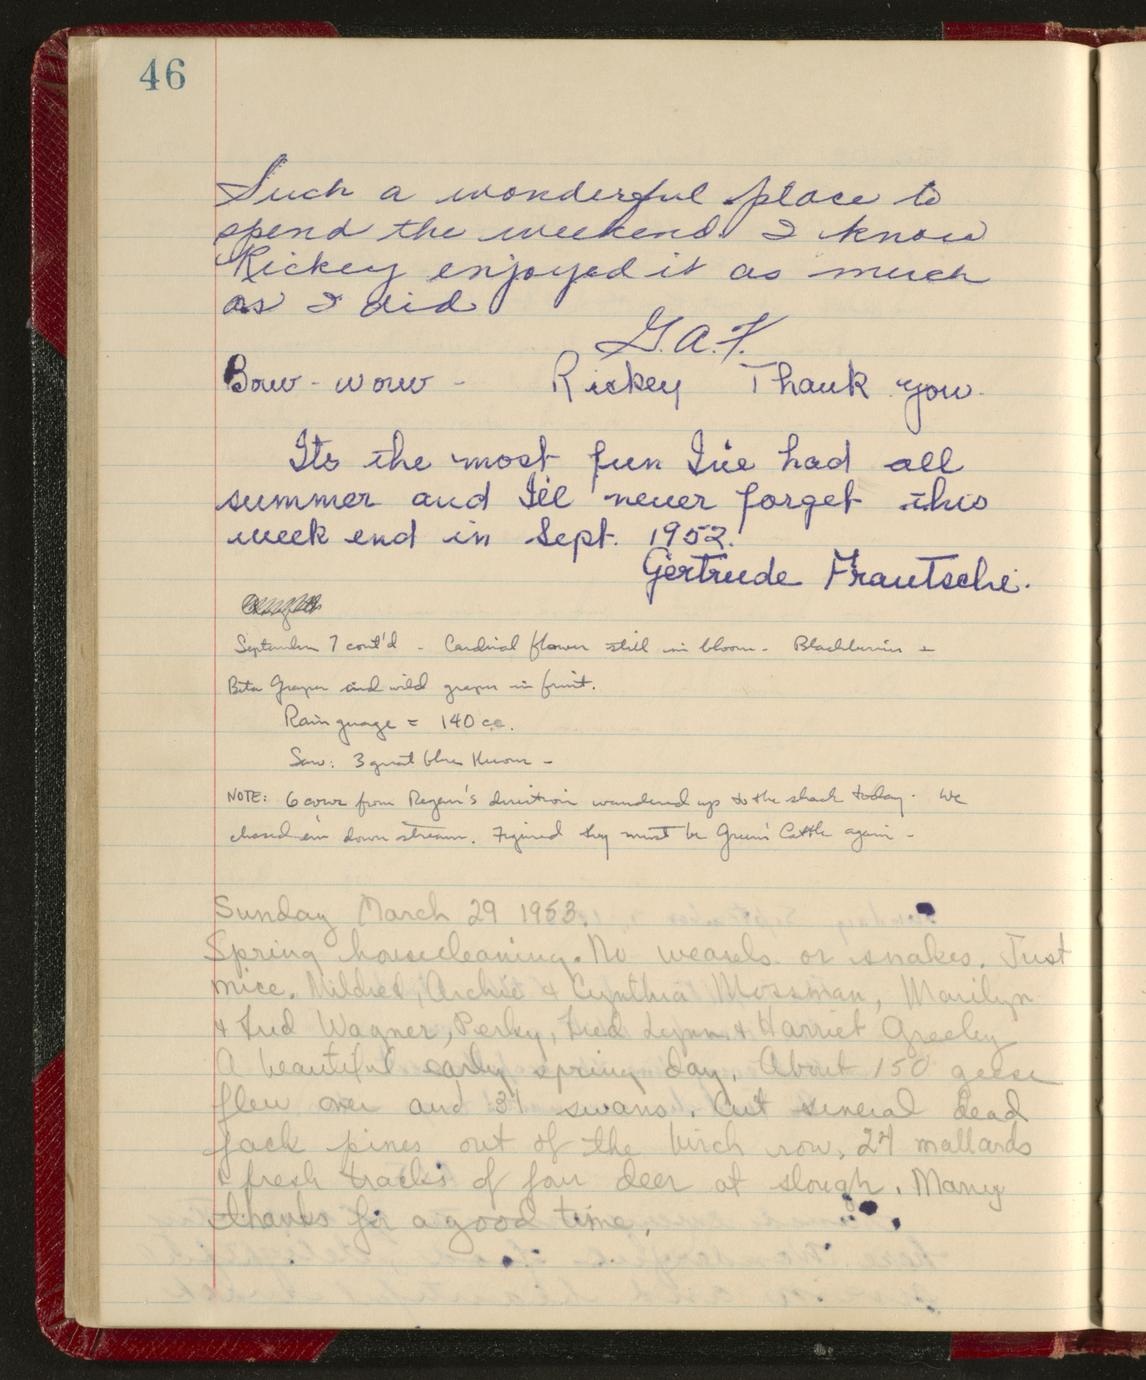 46
Such a wonderful place to
spend the weekend. I know
Rickey enjoyed it as much
as I did
G.A.F.
Bow-wow - Rickey Thank you.
Its the most fun I've had all
summer and I'll never forget this
week end in Sept. 1952.
Gertrude Frautschi.
September 7 cont'd - Cardinal flower still in bloom. Blackberries +
Beta Grapes and wild grapes in fruit.
Rain guage = 140 cc.
Saw: 3 great blue Heron -
NOTE: 6 cows from Regan's direction wandered up to the shack today. We
chased em down stream. Figured they must be Cattle again -
Sunday March 29 1953.
Spring housecleaning. No weasels or snakes. Just
mice. Mildred, Archie & Cynthia Mossman, Marilyn
& Fred Wagner, Perky, Fred Lynn & Harriet Greeley
A beautiful early spring day. About 150 geese
flew over and 31 swans. Cut several dead
jack pines out of the birch row. 24 mallards
& fresh tracks of four deer at slough. Many
thanks for a good time.